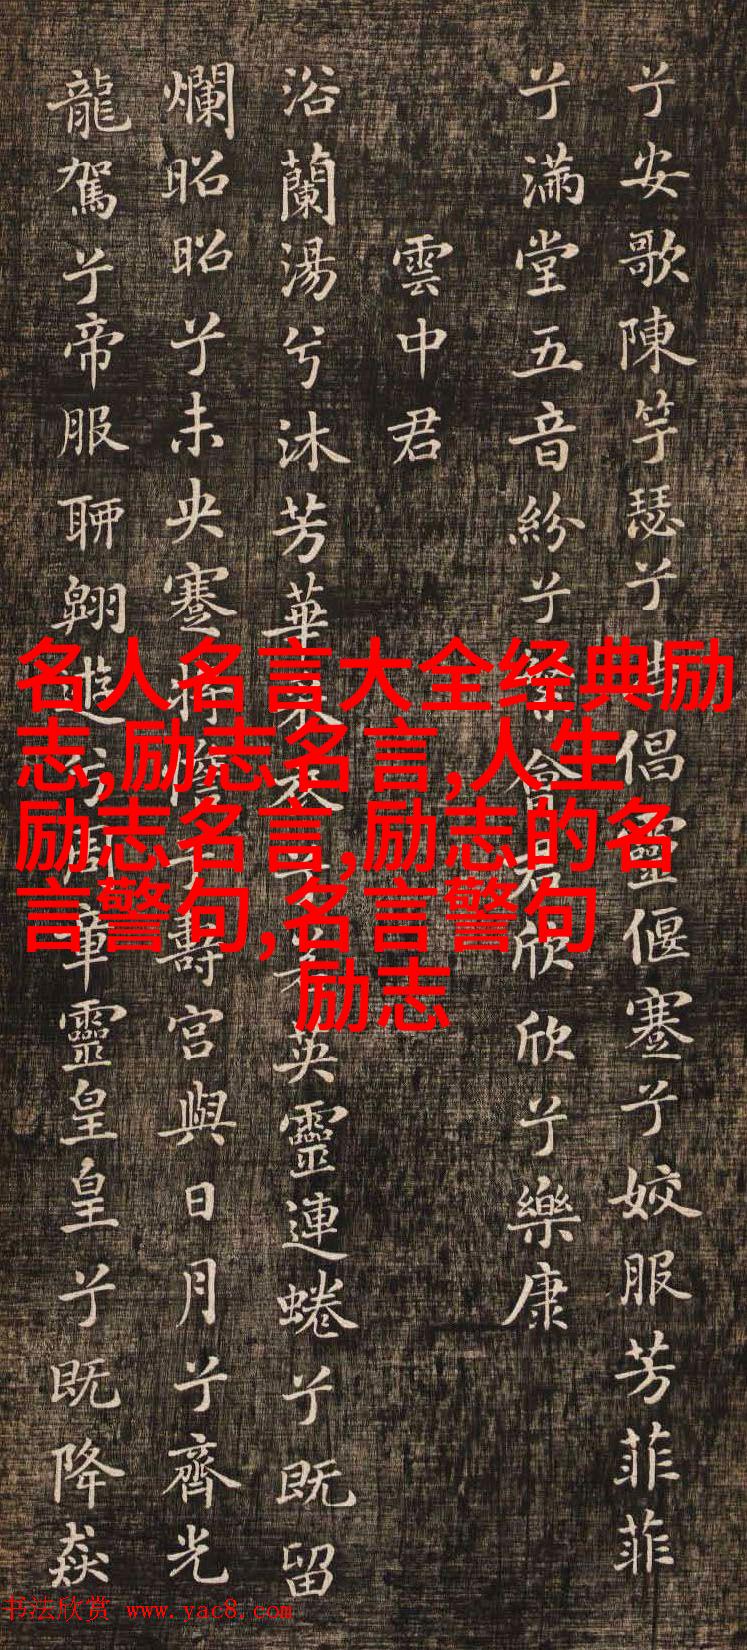 兮安歌陳竽瑟兮倡靈偃蹇兮姣服芳菲菲
兮滿堂五音紛兮會君欣欣兮樂康
雲中君
浴蘭湯兮沐芳華采衣兮若英靈連蜷兮既留
爛昭昭兮未央蹇將憺兮壽宮與日月兮齊光
龍駕兮帝服聊翱遊兮周章靈皇皇兮既降猋
名人名言大全经典励
志,励志名言,人生
励志名言,励志的名
言警句,名言警句
励志
书法欣赏 www.yac8.com